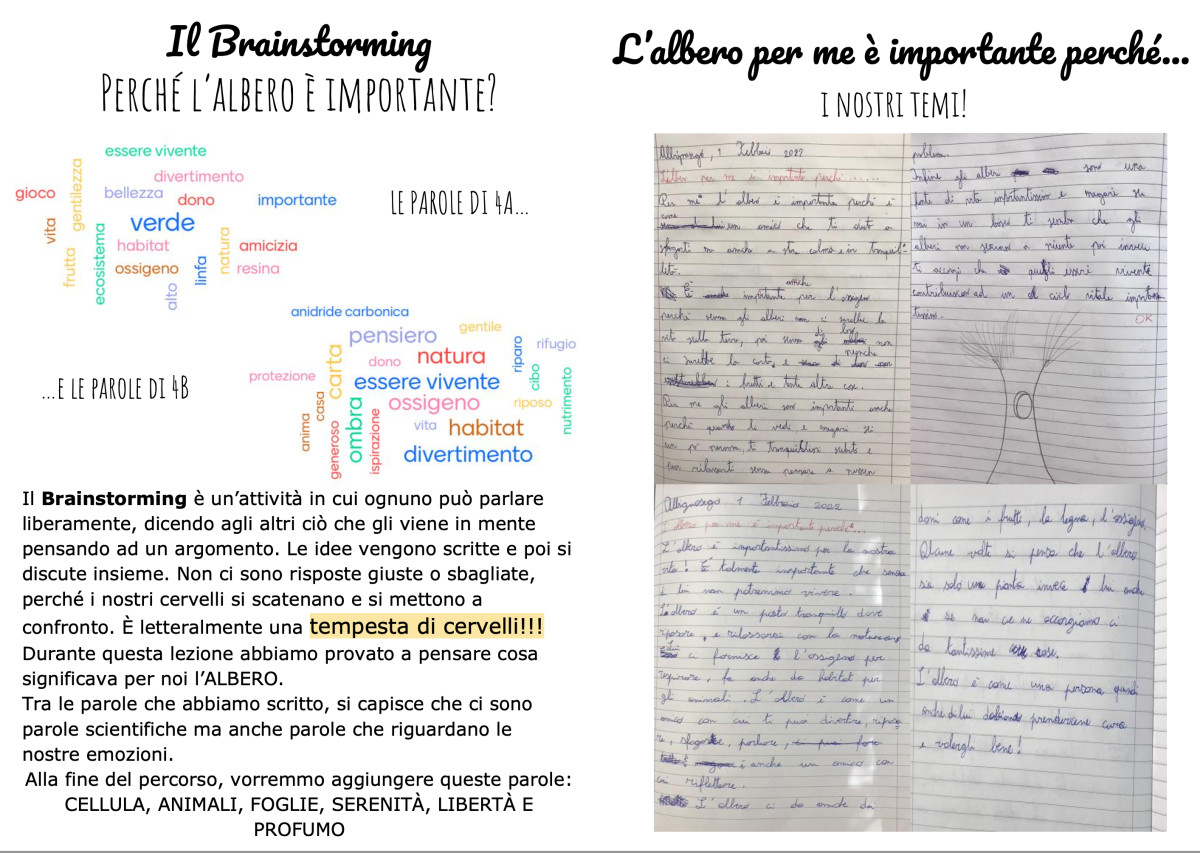 Il Brainstorming
PERCHÉ L'ALBERO È IMPORTANTE?
essere vivente
divertimento
gioco
gentilezza
bellezza
dono
importante
verde
vita
habitat
natura
amicizia
frutta
ecosistema
ossigeno
linfa
resina
alto
LE PAROLE DI 4A...
anidride carbonica
pensiero
gentile
carta
dono
natura
riparo
rifugio
protezione
essere vivente
cibo
nutrimento
casa
ossigeno
riposo
anima
generoso
ombra
ispirazione
vita
habitat
divertimento
...E LE PAROLE DI 4B
Il Brainstorming è un'attività in cui ognuno può parlare
liberamente, dicendo agli altri ciò che gli viene in mente
pensando ad un argomento. Le idee vengono scritte e poi si
discute insieme. Non ci sono risposte giuste o sbagliate,
perché i nostri cervelli si scatenano e si mettono a
confronto. È letteralmente una tempesta di cervelli!!!
Durante questa lezione abbiamo provato a pensare cosa
significava per noi l'ALBERO.
Tra le parole che abbiamo scritto, si capisce che ci sono
parole scientifiche ma anche parole che riguardano le
nostre emozioni.
Alla fine del percorso, vorremmo aggiungere queste parole:
CELLULA, ANIMALI, FOGLIE, SERENITÀ, LIBERTÀ E
PROFUMO
L'albero per me è importante perché...
I NOSTRI TEMI!
1 Febbraio 2022
per me è importante perché
Per me l'albero è importante perché è
come un amico che ti aiuta a
sfogarti ma anche a star calmo e in tranquil-
lità.
È importante anche per l'ossigeno
perché senza gli alberi non ci sarebbe la
vita sulla terra, poi senza di loro non
ci sarebbe la carta, e neanche
i frutti e tante altre cose.
Per me gli alberi sono importanti anche
perché quando li vedi e magari sei
un po' nervoso, ti tranquillizzi subito e
senza pensare a nessun
problema.
Infine gli alberi sono una
fonte di vita importantissima e magari se
sei in un bosco ti sembra che gli
alberi non servano a niente poi invece
ti accorgi che quegli esseri viventi
contribuiscono ad un ciclo vitale importan-
tissimo.
OK
1 Febbraio 2022
L'albero per me è importante perché...
L'albero è importantissimo per la nostra
vita! È talmente importante che senza
di lui non potremmo vivere.
L'albero è un posto tranquillo dove
riposare, e rilassarsi con la natura
ci fornisce l'ossigeno per
respirare, fa anche da habitat per
gli animali. L'albero è come un
amico con cui ti puoi divertire, riposa-
re, sfogare, parlare,
è anche un amico con
cui riflettere.
L'albero ci dà anche dei
doni come i frutti, la legna, l'ossigeno.
Alcune volte si pensa che l'albero
sia solo una pianta invece lui anche
se noi ce ne accorgiamo ci
dà tantissime cose.
L'albero è come una persona quindi
anche di lui dobbiamo prendercene cura
e volergli bene!